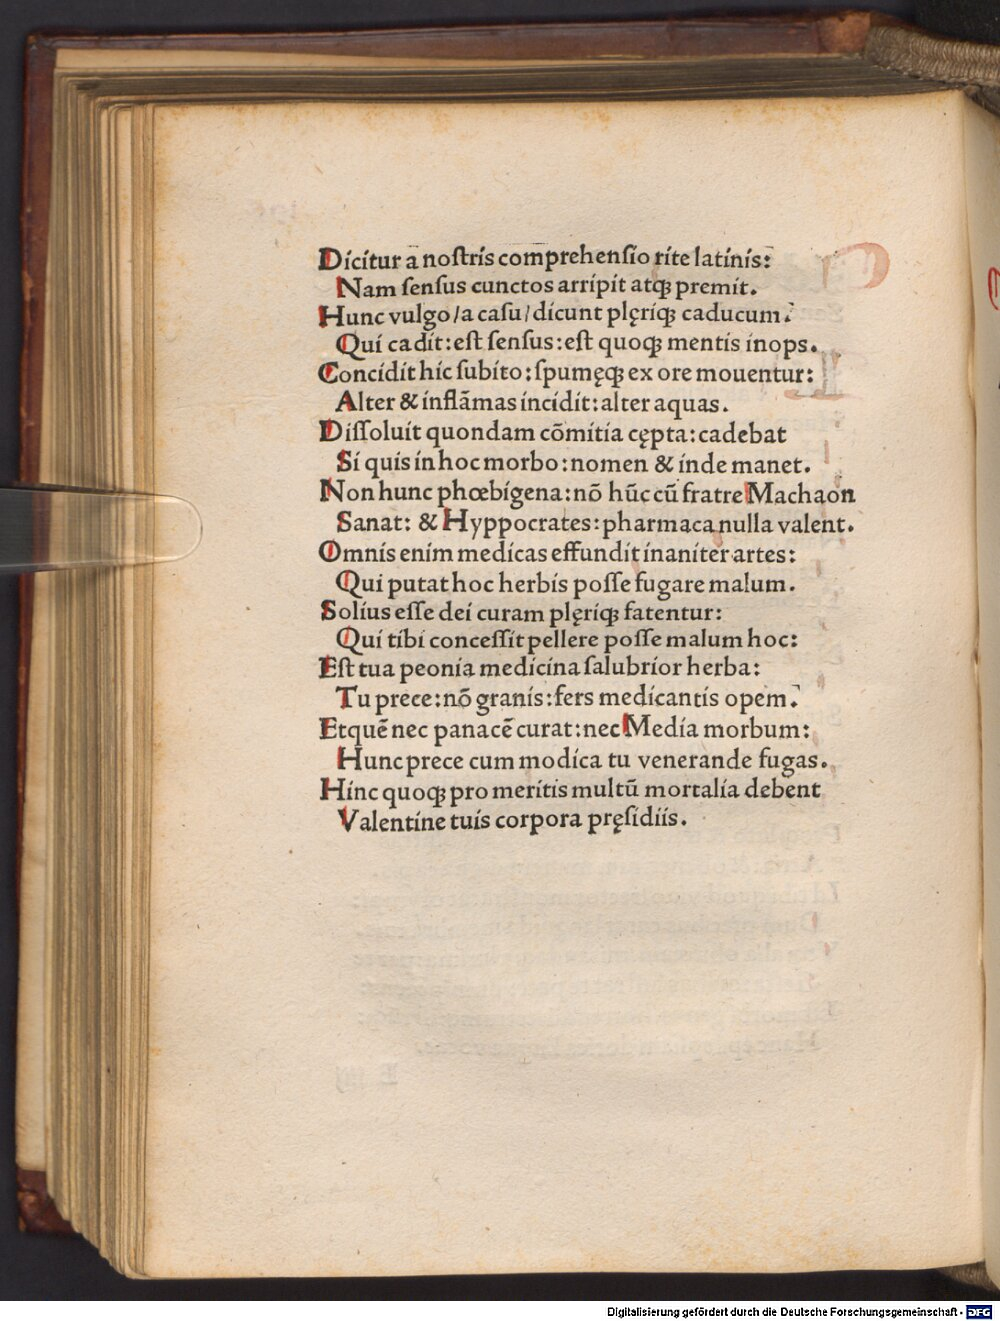 Dicitur a nostris comprehensio rite latinis:
Nam sensus cunctos arripit atqꝫ premit.
Hunc vulgo/a casu/dicunt plęriqꝫ caducum.
Qui cadit:est sensus:est quoqꝫ mentis inops.
Concidit hic subito:spumęqꝫ ex ore mouentur:
Alter & inflāmas incidit:alter aquas.
Dissoluit quondam cōmitia cępta:cadebat
Si quis in hoc morbo:nomen & inde manet.
Non hunc phœbigena:nō hūc cū fratre Machaon
Sanat: & Hyppocrates:pharmaca nulla valent.
Omnis enim medicas effundit inaniter artes:
Qui putat hoc herbis posse fugare malum.
Solius esse dei curam plęriqꝫ fatentur:
Qui tibi concessit pellere posse malum hoc:
Est tua peonia medicina salubrior herba:
Tu prece:nō granis:fers medicantis opem.
Et quē nec panacē curat:nec Media morbum:
Hunc prece cum modica tu venerande fugas.
Hinc quoqꝫ pro meritis multū mortalia debent
Valentine tuis corpora pręsidiis.
Digitalisierung gefördert durch die Deutsche Forschungsgemeinschaft - DFG